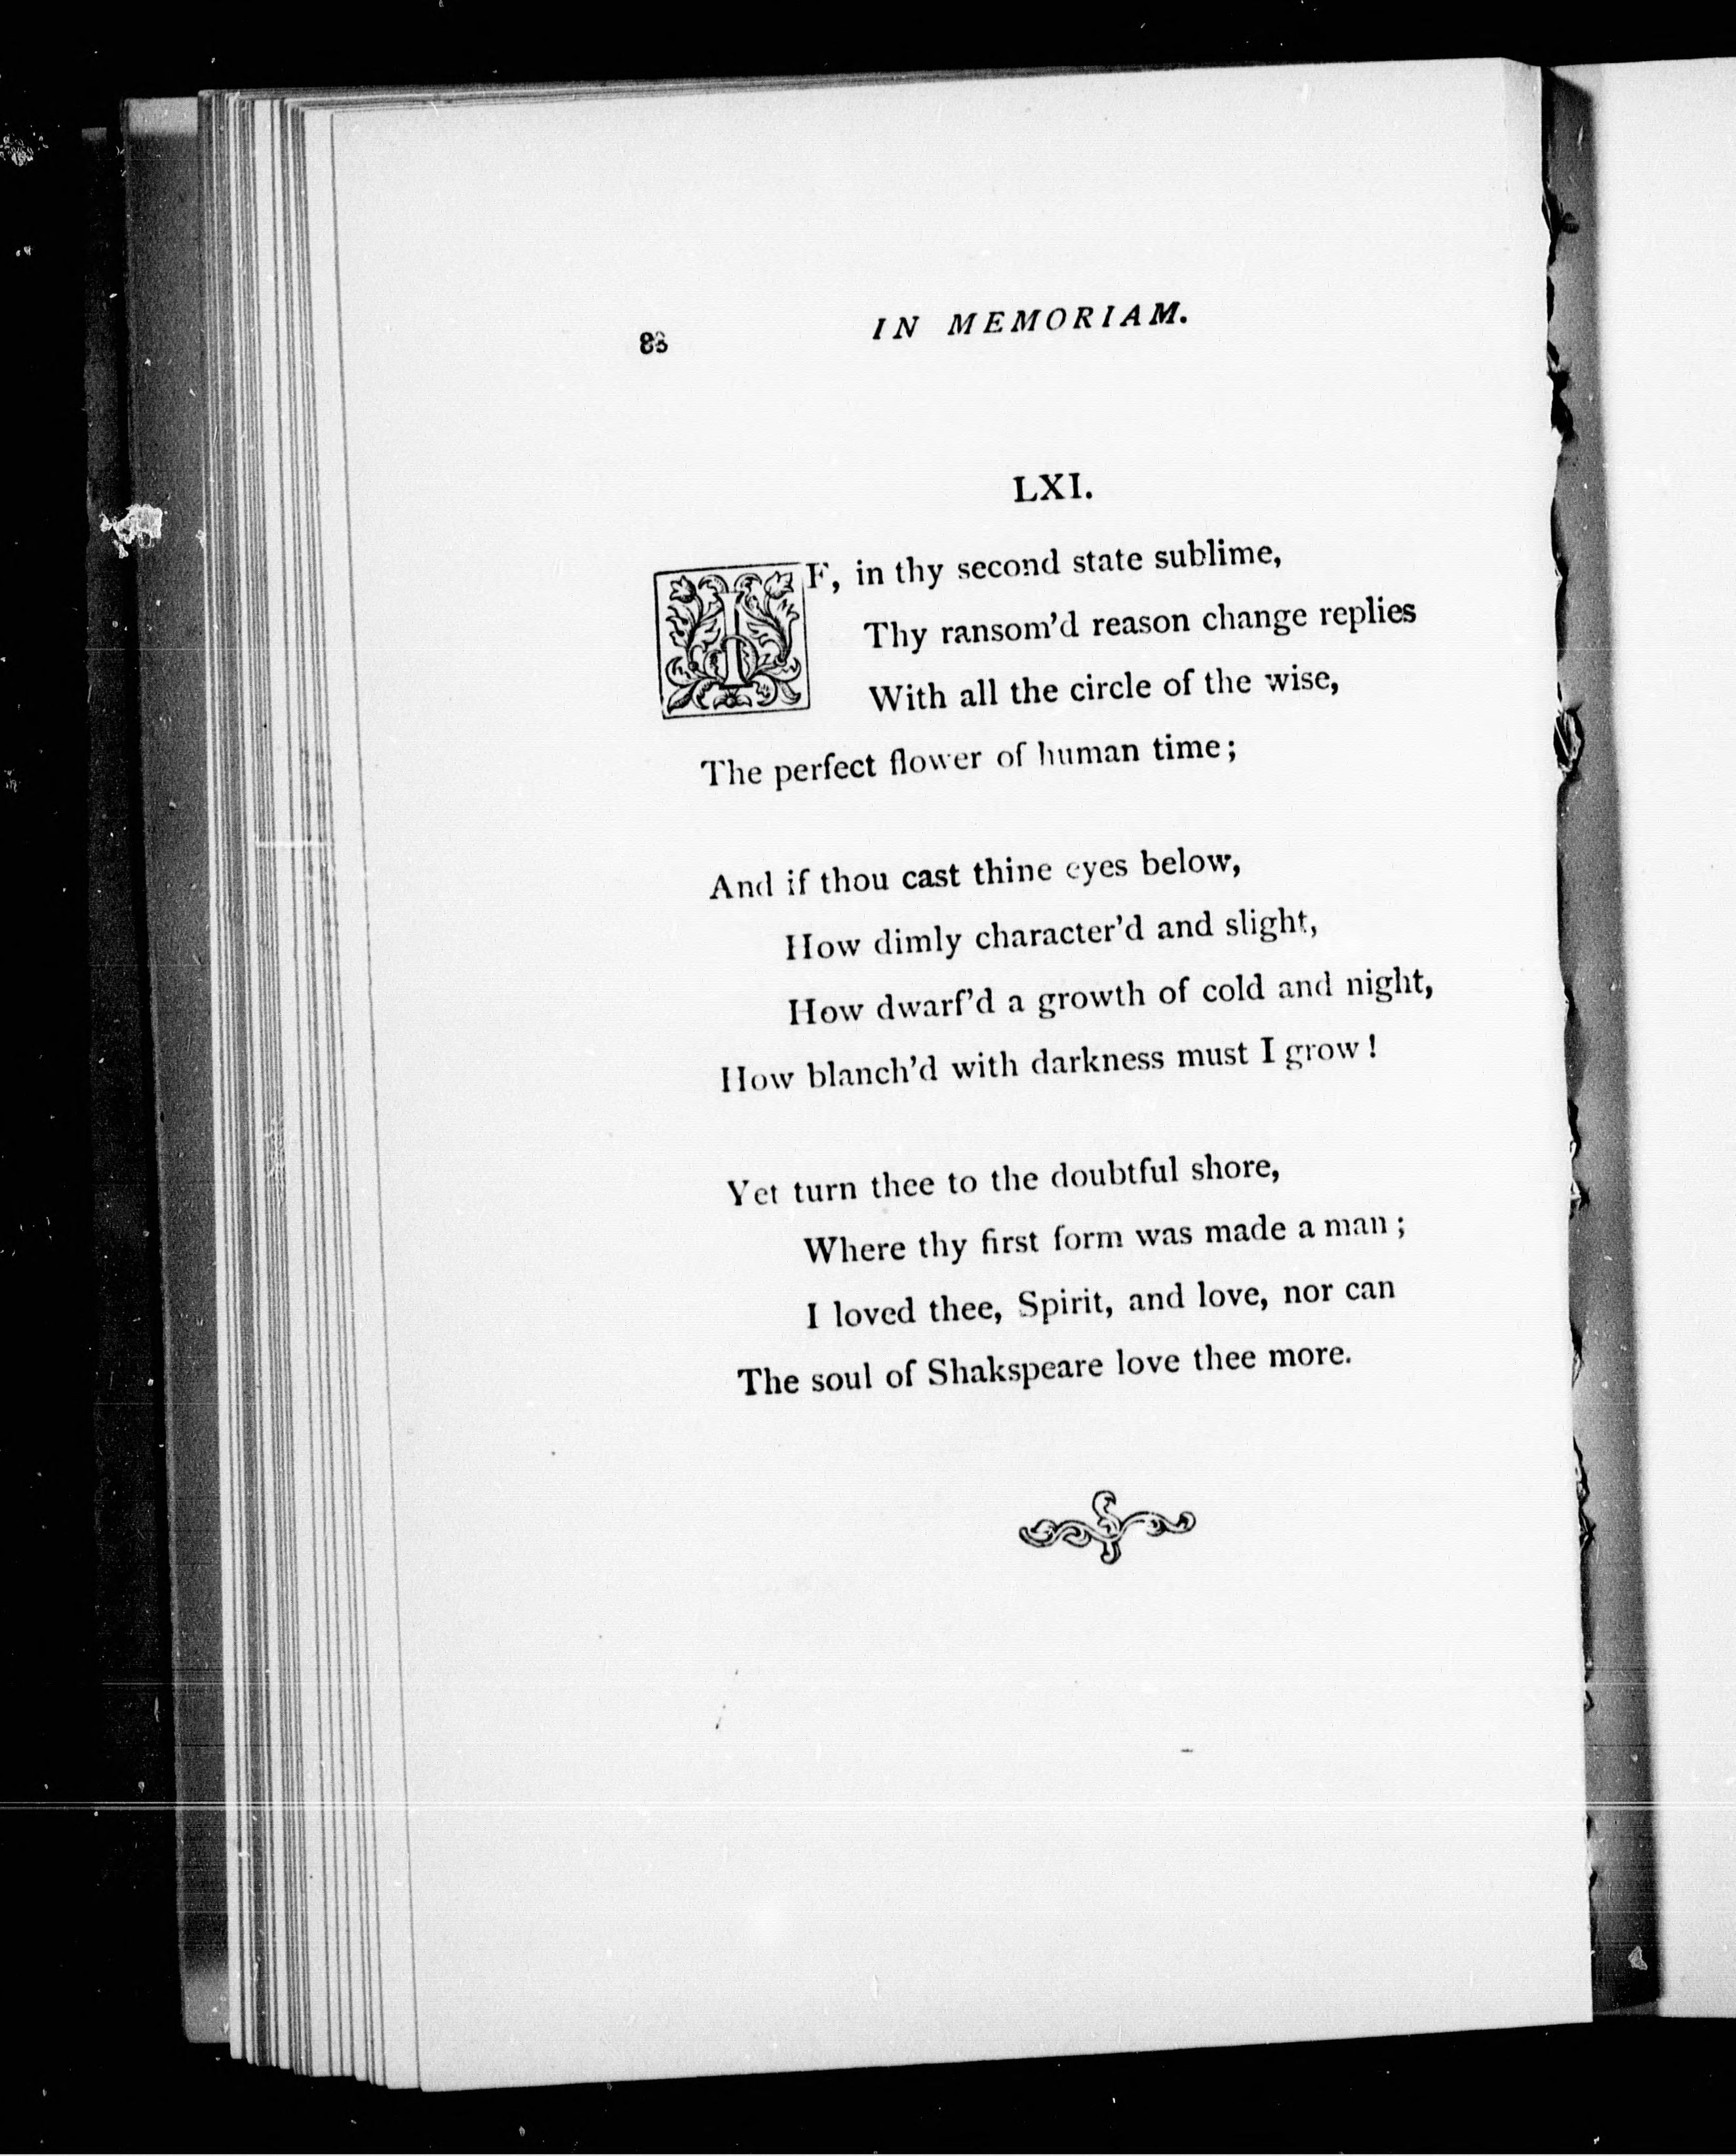 IN MEMORIAM.
LXI.
IF, in thy second state sublime,
Thy ransom'd reason change replies
With all the circle of the wise,
The perfect flower of human time;
And if thou cast thine eyes below,
How dimly character'd and slight,
How dwarf'd a growth of cold and night,
How blanch'd with darkness must I grow!
Yet turn thee to the doubtful shore,
Where thy first form was made a man;
I loved thee, Spirit, and love, nor can
The soul of Shakspeare love thee more.